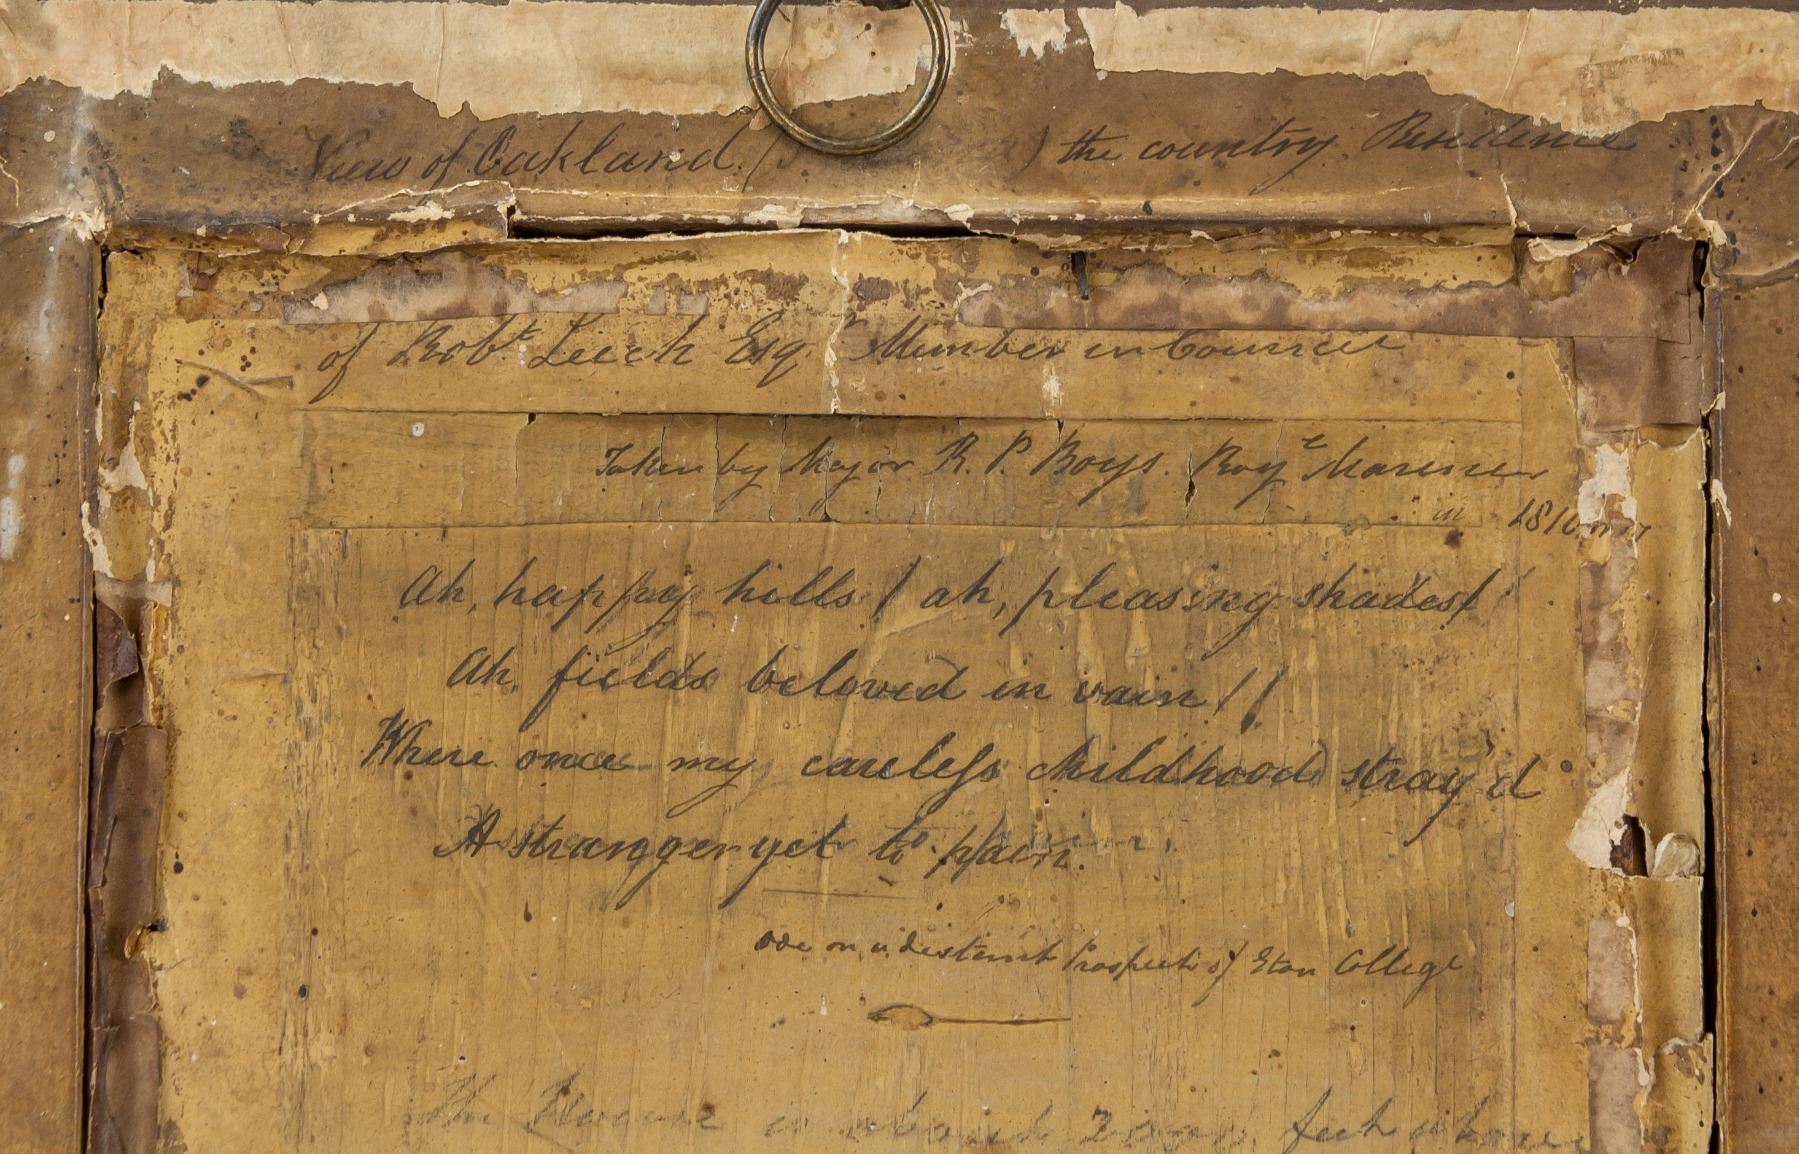 View of Oakland. ( ) the country Residence
of Robt Leech Esqr Member in Council
Taken by Major R. P. Boys. Royl Marines
in 1816 or 17
Ah, happy hills! ah, pleasing shades!
Ah, fields beloved in vain!!
Where once my careless childhood stray'd
A stranger yet to pain.
Ode on a distant Prospect of Eton College
The House is about 2000 feet above